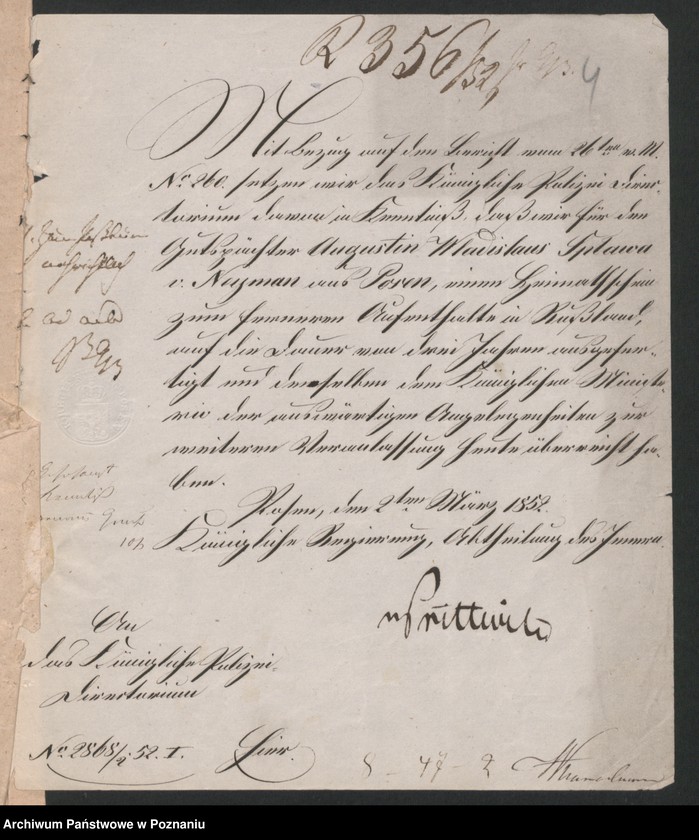 R 356/52
4
Mit Bezug auf den Bericht vom 26ten v. M.
No 260. setzen wir das Königliche Polizei Direc-
torium davon in Kenntniß, daß wir für den
Gutspächter Augustin Wladislaus Szplawa
v. Neyman aus Posen, einen Heimathschein
zum ferneren Aufenthalte in Rußland,
auf die Dauer von drei Jahren ausgefer-
tigt und denselben dem Königlichen Ministe-
rio der auswärtigen Angelegenheiten zur
weiteren Veranlassung heute überreicht ha-
ben.
Posen, den 2ten März 1852.
Königliche Regierung, Abtheilung des Innern.
ad acta
An
das Königliche Polizei-
Directorium
No 2868/2 52. I. Hier.
8 - 47 - 2
Archiwum Państwowe w Poznaniu